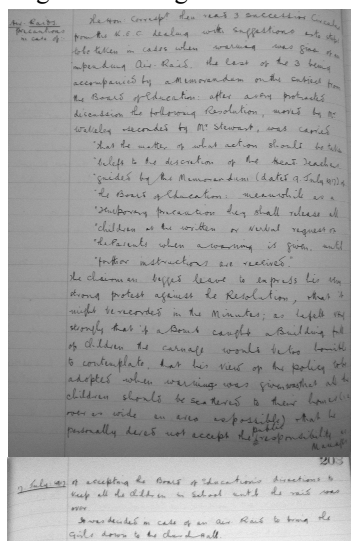 Air Raids
Precautions
in case of
The Hon. Corresp.t then read 3 successive Circulars
from the K.E.C dealing with suggestions as to steps
to be taken in cases when warning was given of an
impending Air Raid. the last of the 3 being
accompanied by a Memorandum on the subject from
the Board of Education: after a very protracted
discussion the following Resolution, moved by Mr
seconded by Mr Stewart, was carried
"that the matter of what action should be taken
"be left to the discretion of the Head Teacher
"guided by the Memorandum (dated July 1917) of
"the Board of Education: meanwhile as a
"temporary precaution they shall release all
"children at the written or verbal request of
"the Parents when a warning is given, until
"further instructions are received."
The Chairman begged leave to express his very
strong protest against the Resolution, that it
might be recorded in the Minutes; as he felt very
strongly that if a Bomb caught a Building full
of Children the carnage would be too horrible
to contemplate, that his view of the policy to be
adopted when warning was given was that all the
children should be scattered to their homes (i.e.
over as wide an area as possible) that he
personally dared not accept the public responsibility as
Manager
203
July 1917
of accepting the Board of Education's directions to
keep all the Children in School until the raid was
over
It was decided in case of an Air Raid to bring the
Girls down to the Church Hall.